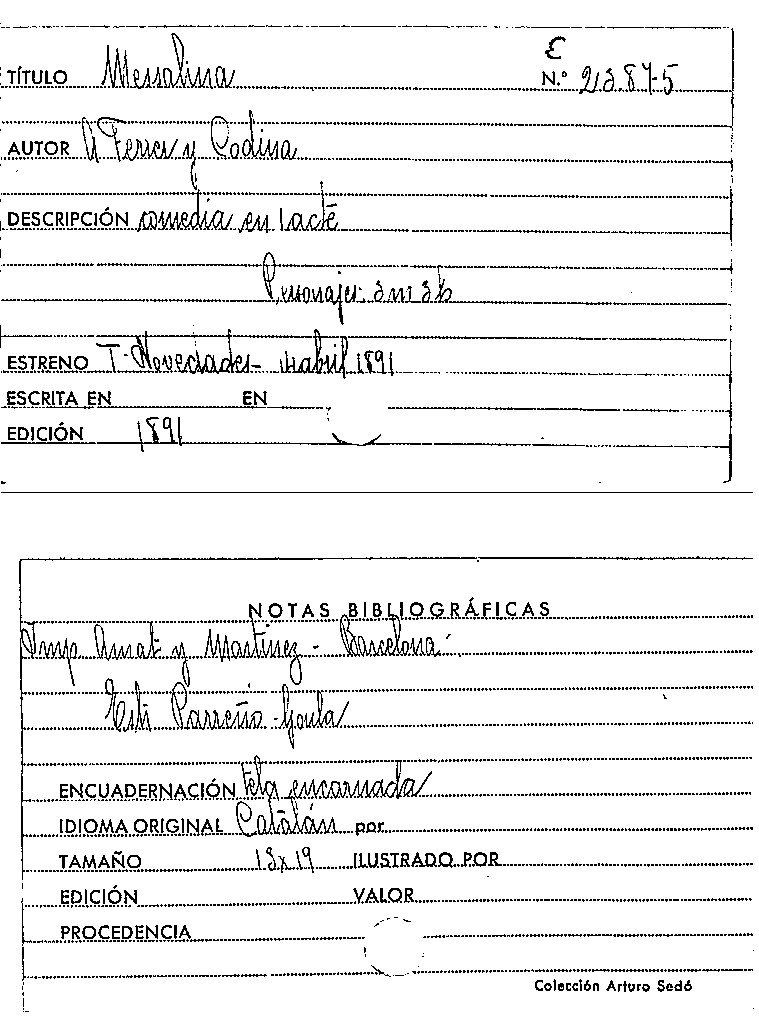 E
TÍTULO Messalina N.º 213.87-5
AUTOR A Ferrer y Codina
DESCRIPCIÓN comedia en 1 acte
Personajes: 3m 3h
ESTRENO T. Novedades - 14 abril 1891
ESCRITA EN EN
EDICIÓN 1891
NOTAS BIBLIOGRÁFICAS
Imp Amat y Martinez - Barcelona
Parreño - Goula
ENCUADERNACIÓN tela encarnada
IDIOMA ORIGINAL Catalán por
TAMAÑO 13x19 ILUSTRADO POR
EDICIÓN VALOR
PROCEDENCIA
Colección Arturo Sedó